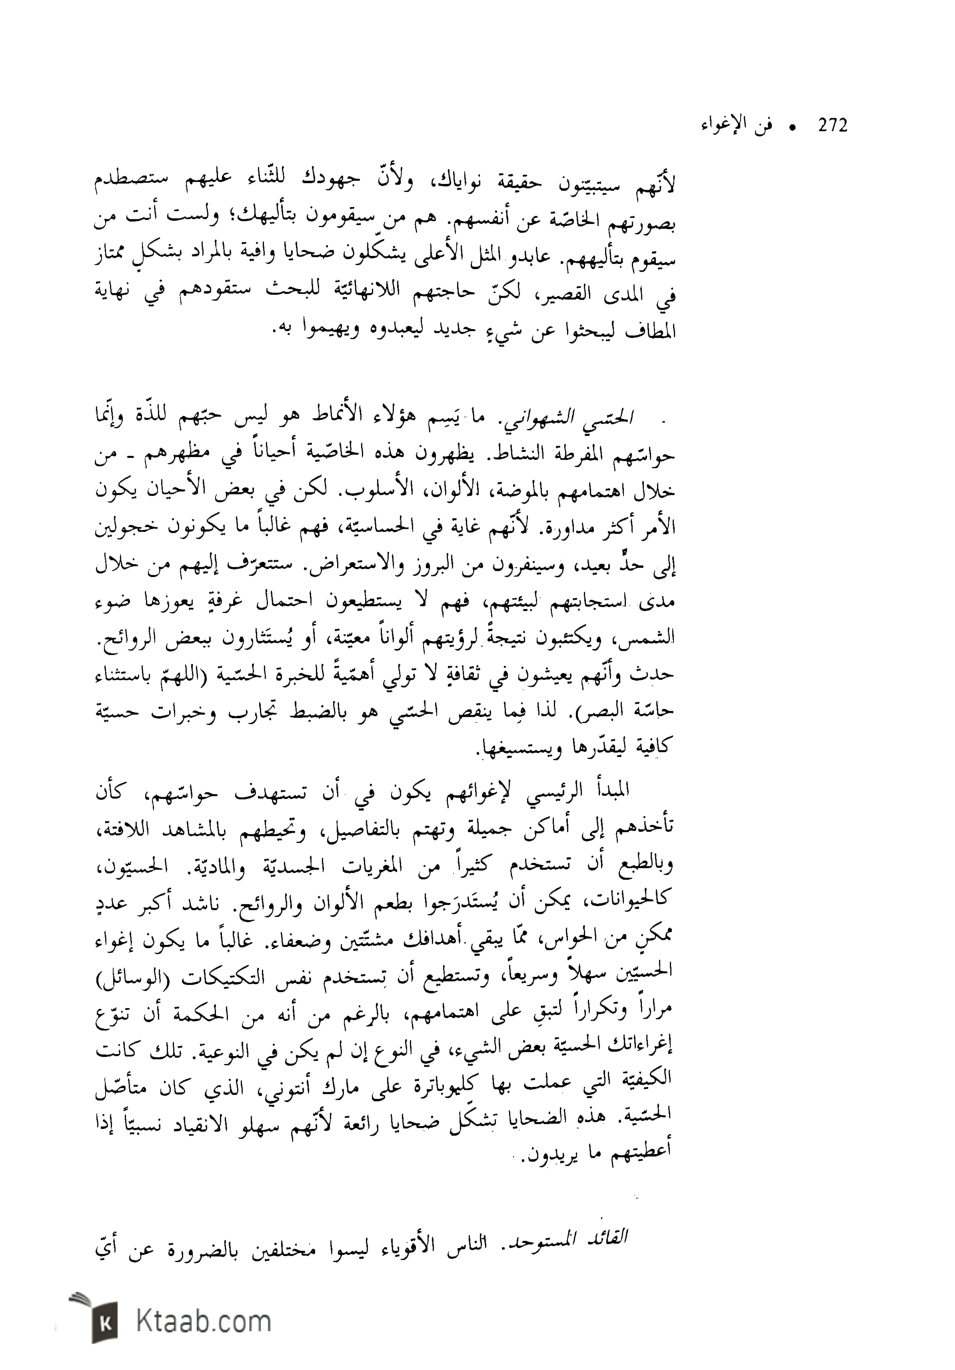 272 • فن الإغواء
لأنّهم سيتبيّنون حقيقة نواياك، ولأنّ جهودك للثّناء عليهم ستصطدم
بصورتهم الخاصّة عن أنفسهم. هم من سيقومون بتأليهك؛ ولست أنت من
سيقوم بتأليههم. عابدو المثل الأعلى يشكّلون ضحايا وافية بالمراد بشكلٍ ممتاز
في المدى القصير، لكنّ حاجتهم اللانهائيّة للبحث ستقودهم في نهاية
المطاف ليبحثوا عن شيءٍ جديد ليعبدوه ويهيموا به.
الحسّي الشهواني. ما يَسِم هؤلاء الأنماط هو ليس حبّهم للذّة وإنّما
حواسّهم المفرطة النشاط. يظهرون هذه الخاصّية أحياناً في مظهرهم ـ من
خلال اهتمامهم بالموضة، الألوان، الأسلوب. لكن في بعض الأحيان يكون
الأمر أكثر مداورة. لأنّهم غاية في الحساسيّة، فهم غالباً ما يكونون خجولين
إلى حدٍّ بعيد، وسينفرون من البروز والاستعراض. ستتعرّف إليهم من خلال
مدى استجابتهم لبيئتهم، فهم لا يستطيعون احتمال غرفةٍ يعوزها ضوء
الشمس، ويكتئبون نتيجةً لرؤيتهم ألواناً معيّنة، أو يُستَثارون ببعض الروائح.
حدث وأنّهم يعيشون في ثقافةٍ لا تولي أهمّيةً للخبرة الحسّية (اللهمّ باستثناء
حاسّة البصر). لذا فما ينقص الحسّي هو بالضبط تجارب وخبرات حسيّة
كافية ليقدّرها ويستسيغها.
المبدأ الرئيسي لإغوائهم يكون في أن تستهدف حواسّهم، كأن
تأخذهم إلى أماكن جميلة وتهتم بالتفاصيل، وتحيطهم بالمشاهد اللافتة،
وبالطبع أن تستخدم كثيراً من المغريات الجسديّة والماديّة. الحسيّون،
كالحيوانات، يمكن أن يُستَدرَجوا بطعم الألوان والروائح. ناشد أكبر عددٍ
ممكنٍ من الحواس، ممّا يبقي أهدافك مشتّتين وضعفاء. غالباً ما يكون إغواء
الحسيّين سهلاً وسريعاً، وتستطيع أن تستخدم نفس التكتيكات (الوسائل)
مراراً وتكراراً لتبقِ على اهتمامهم، بالرغم من أنه من الحكمة أن تنوّع
إغراءاتك الحسيّة بعض الشيء، في النوع إن لم يكن في النوعية. تلك كانت
الكيفيّة التي عملت بها كليوباترة على مارك أنتوني، الذي كان متأصّل
الحسّية. هذه الضحايا تشكّل ضحايا رائعة لأنّهم سهلو الانقياد نسبيّاً إذا
أعطيتهم ما يريدون.
القائد المستوحد. الناس الأقوياء ليسوا مختلفين بالضرورة عن أيّ
Ktaab.com